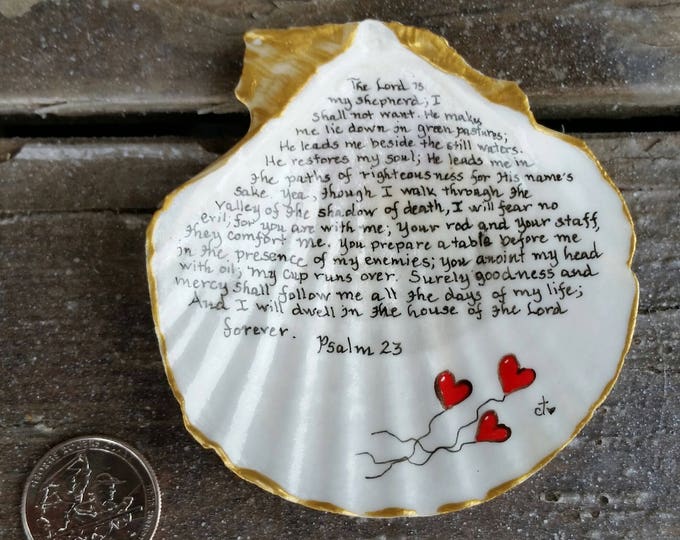 The Lord is
my shepherd; I
shall not want. He makes
me lie down in green pastures;
He leads me beside the still waters.
He restores my soul; He leads me in
the paths of righteousness for His name's
sake. Yea, though I walk through the
valley of the shadow of death, I will fear no
evil; for you are with me; your rod and your staff,
they comfort me. You prepare a table before me
in the presence of my enemies; you anoint my head
with oil; my cup runs over. Surely goodness and
mercy shall follow me all the days of my life;
And I will dwell in the house of the Lord
forever. Psalm 23
ct